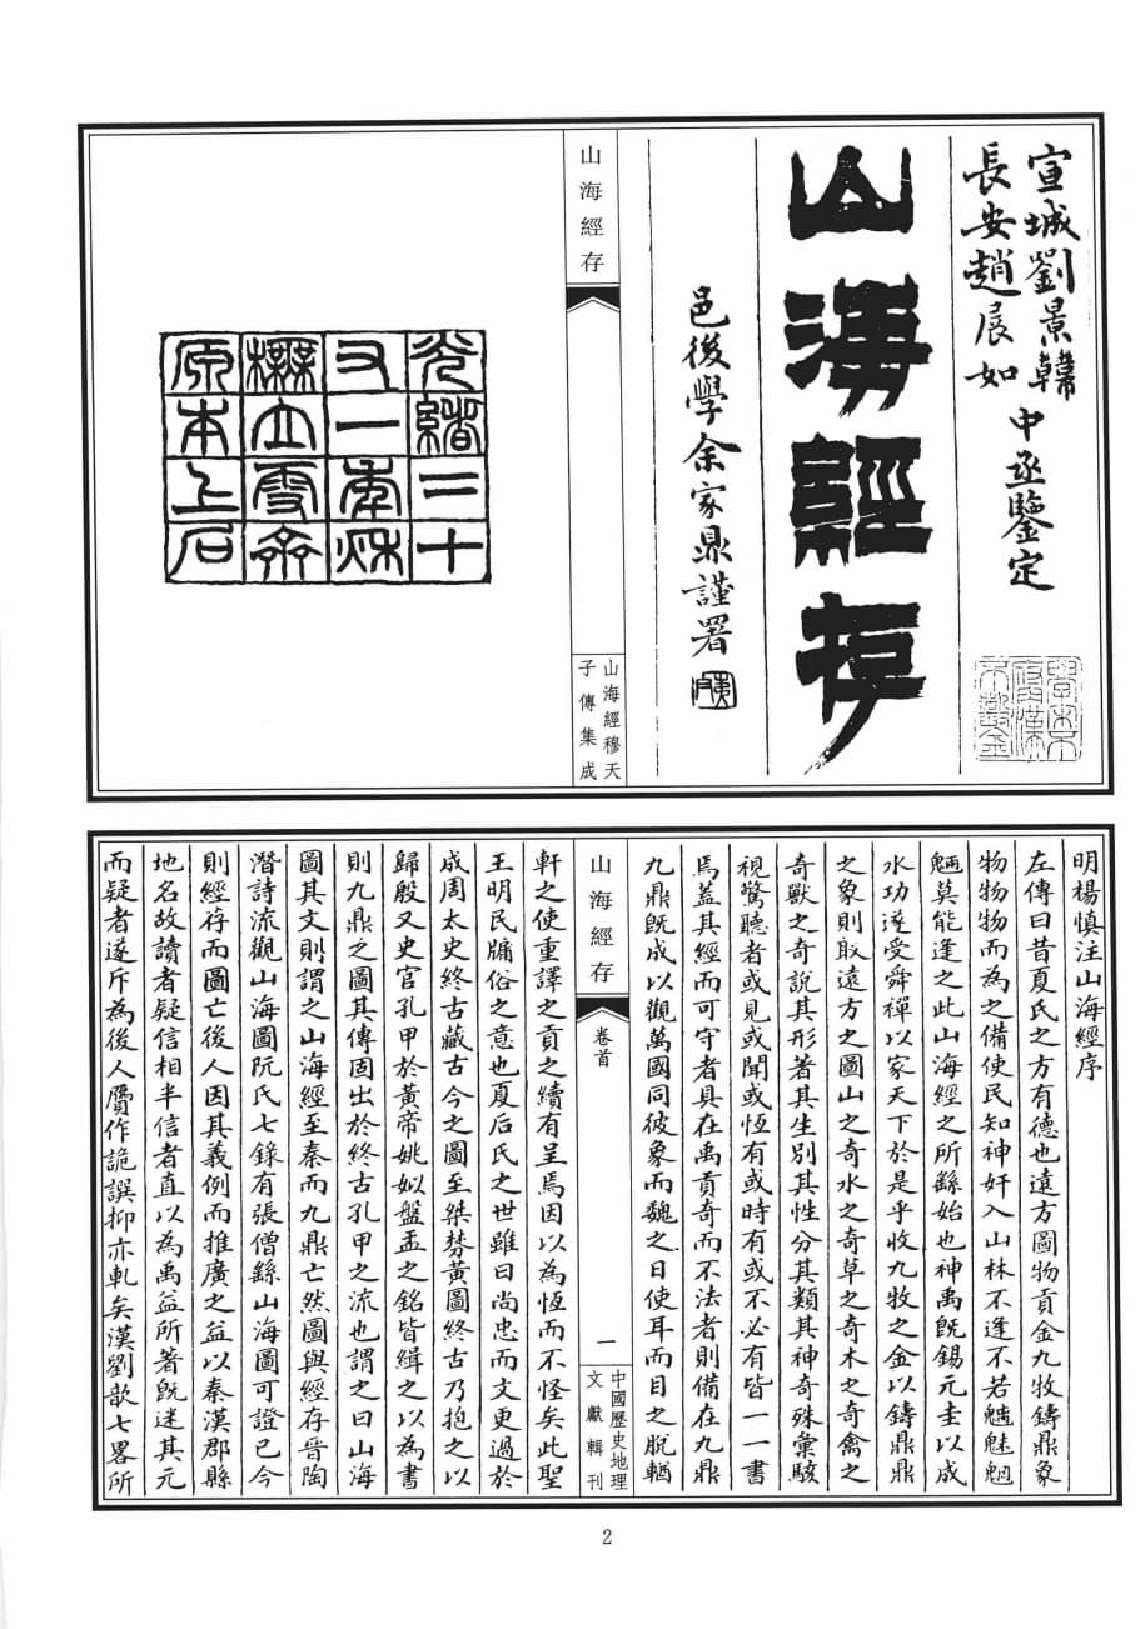 宣城劉景韓
長安趙展如
中丞鑒定
山海經存
邑後學余家鼎謹署
山海經存
山海經穆天
子傳集成
光緒二十
又一年秋
櫟立雪齋
原本上石
明楊慎注山海經序
左傳曰昔夏氏之方有德也遠方圖物貢金九牧鑄鼎象
物物物而為之備使民知神奸入山林不逢不若魑魅魍
魎莫能逢之此山海經之所繇始也神禹旣錫元圭以成
水功遂受舜禪以家天下於是乎收九牧之金以鑄鼎鼎
之象則取遠方之圖山之奇水之奇草之奇木之奇禽之
奇獸之奇說其形著其生別其性分其類其神奇殊彙駭
視驚聽者或見或聞或恆有或時有或不必有皆一一書
焉蓋其經而可守者具在禹貢奇而不法者則備在九鼎
九鼎旣成以觀萬國同彼象而魏之日使耳而目之脫輶
山海經存
卷首
一
中國歷史地理
文獻輯刊
軒之使重譯之貢之續有呈焉因以為恆而不怪矣此聖
王明民牖俗之意也夏后氏之世雖曰尚忠而文更過於
成周太史終古藏古今之圖至桀焚黃圖終古乃抱之以
歸殷又史官孔甲於黃帝姚姒盤盂之銘皆緝之以為書
則九鼎之圖其傳固出於終古孔甲之流也謂之曰山海
圖其文則謂之山海經至秦而九鼎亡然圖與經存晉陶
潛詩流觀山海圖阮氏七錄有張僧繇山海圖可證已今
則經存而圖亡後人因其義例而推廣之益以秦漢郡縣
地名故讀者疑信相半信者直以為禹益所著旣迷其元
而疑者遂斥為後人贋作詭譔抑亦軋矣漢劉歆七畧所
2